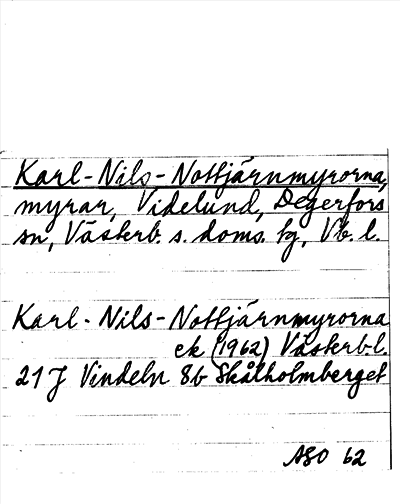 Karl-Nils-Nottjärnmyrorna,
myrar, Videlund, Degerfors
sn, Västerb. s. doms. tg, Vb. l.
Karl-Nils-Nottjärnmyrorna
ek (1962) Västerb. l.
21J Vindeln 8b Skålholmberget
ASO 62